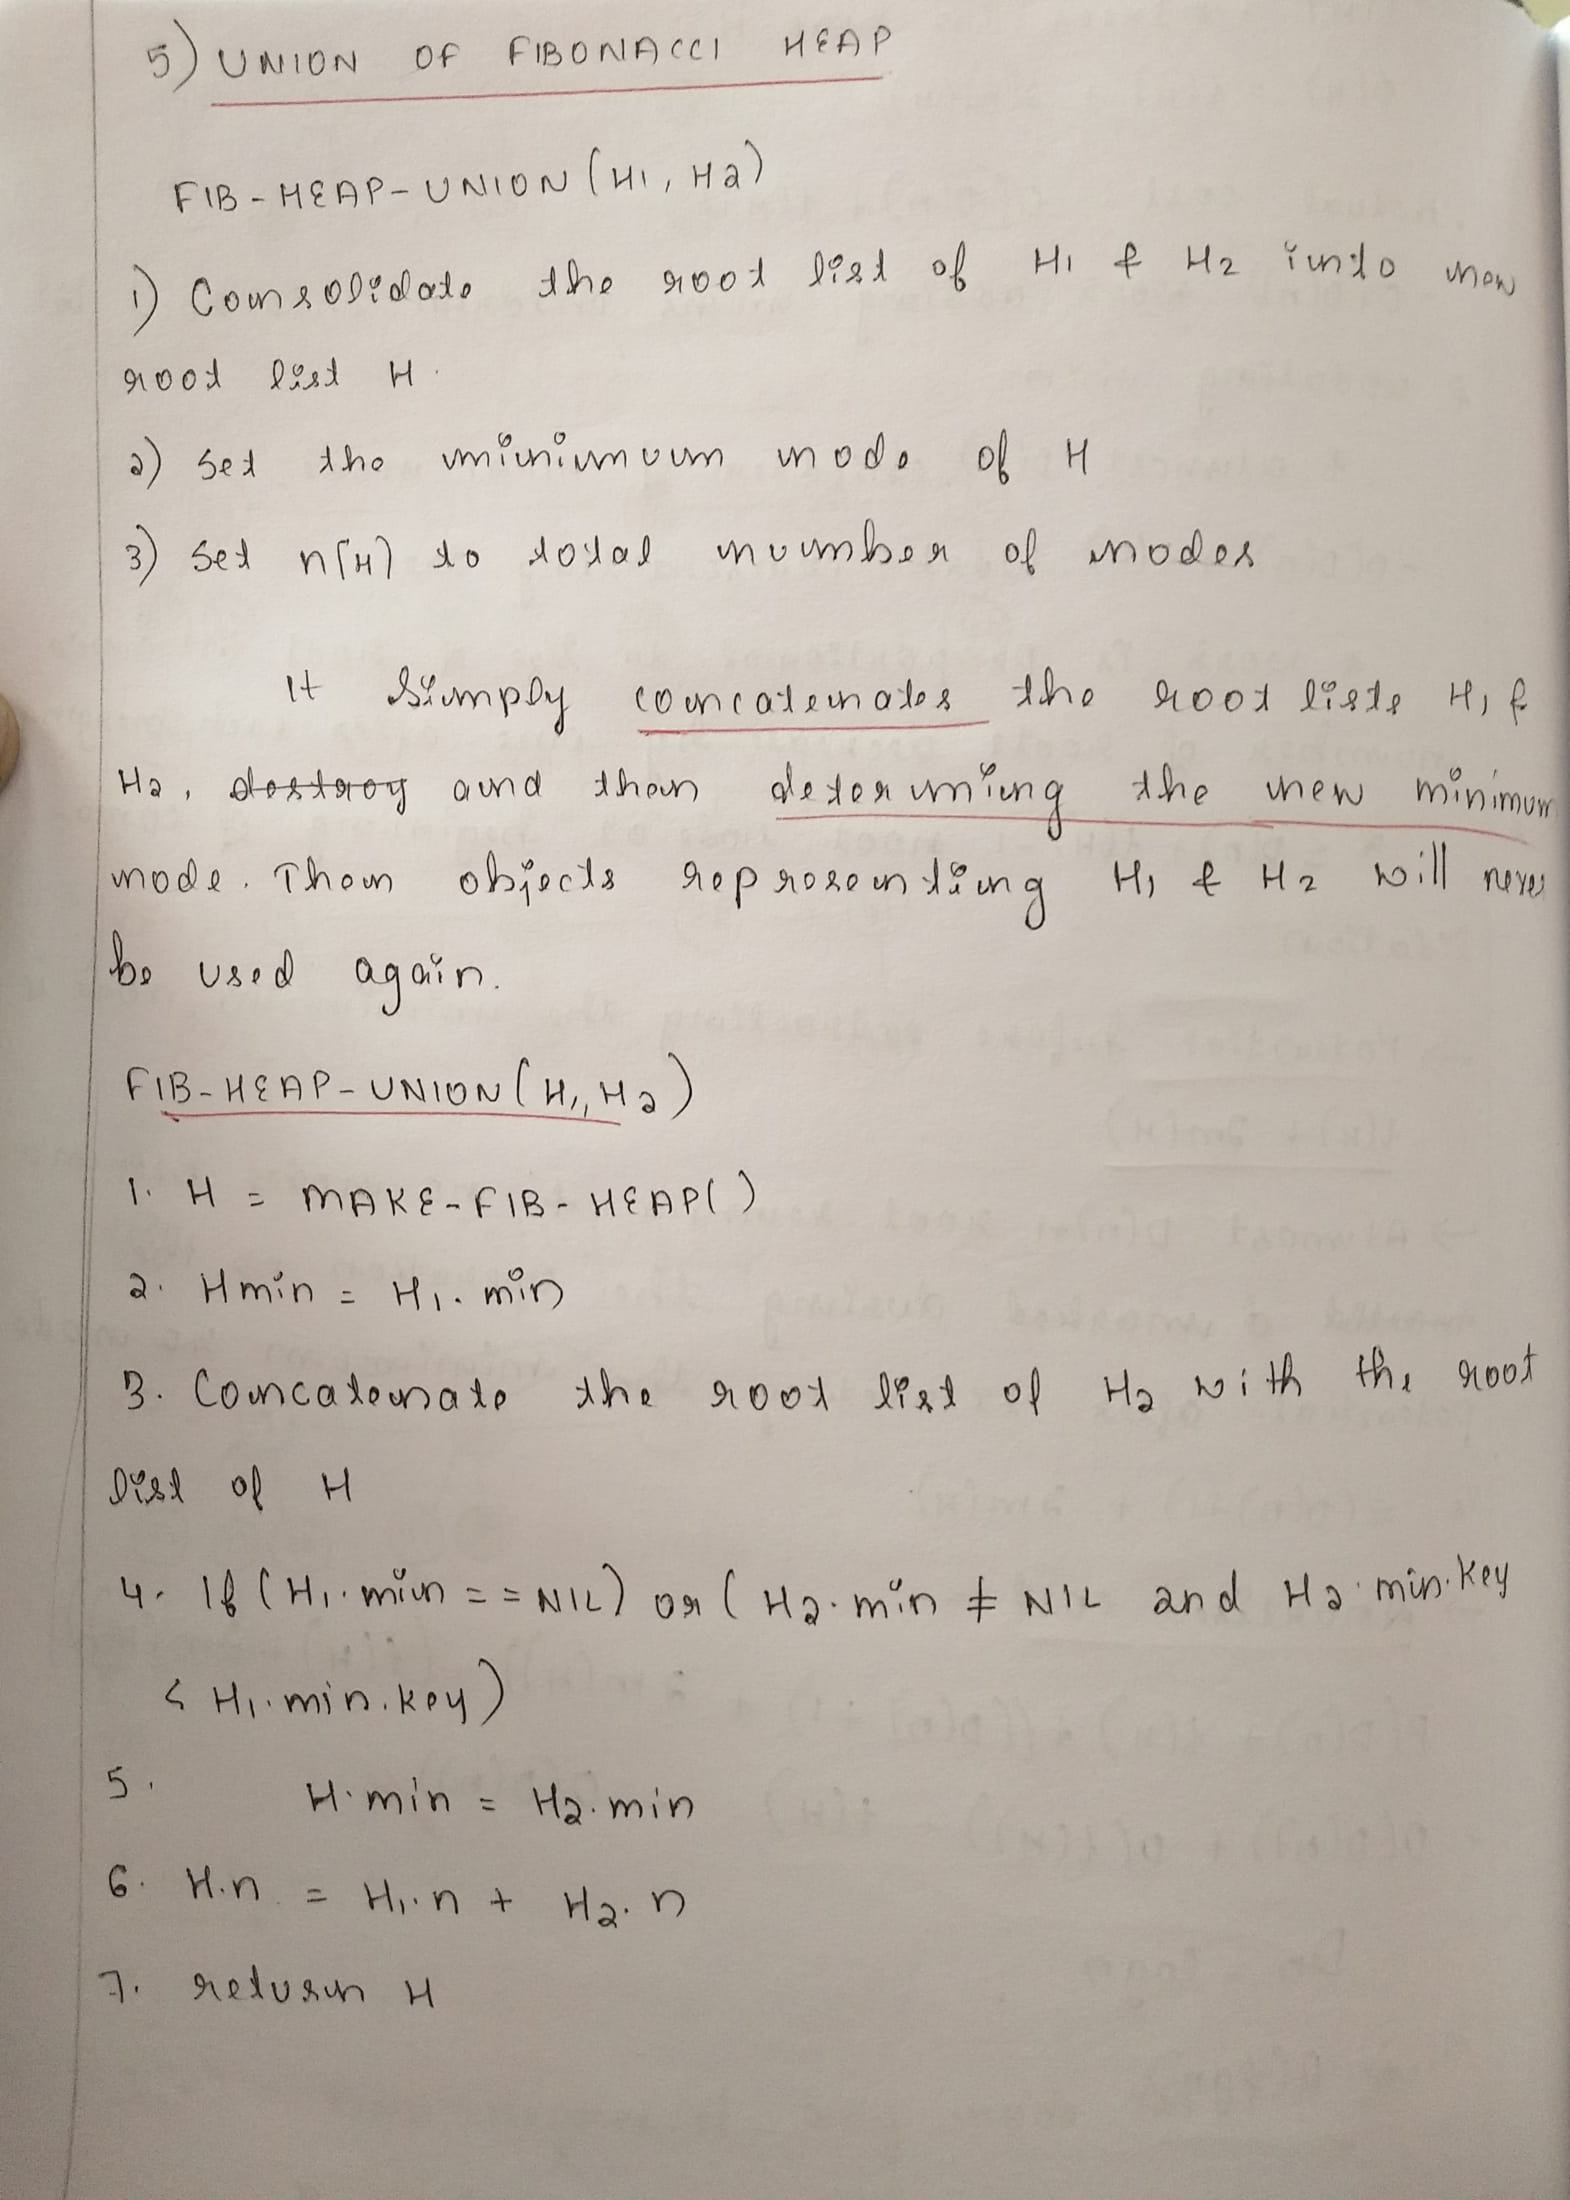 5) UNION OF FIBONACCI HEAP
FIB-HEAP-UNION (H1, H2)
1) Consolidate the root list of H1 & H2 into new
root list H.
2) Set the minimum node of H
3) Set n[H] to total number of nodes
It simply concatenates the root lists H1 &
H2, destroy and then determing the new minimum
node. Then objects representing H1 & H2 will never
be used again.
FIB-HEAP-UNION (H1, H2)
1. H = MAKE-FIB-HEAP()
2. Hmin = H1.min
3. Concatenate the root list of H2 with the root
list of H
4. If (H1.min == NIL) or (H2.min ≠ NIL and H2.min.key
< H1.min.key)
5. H.min = H2.min
6. H.n = H1.n + H2.n
7. return H